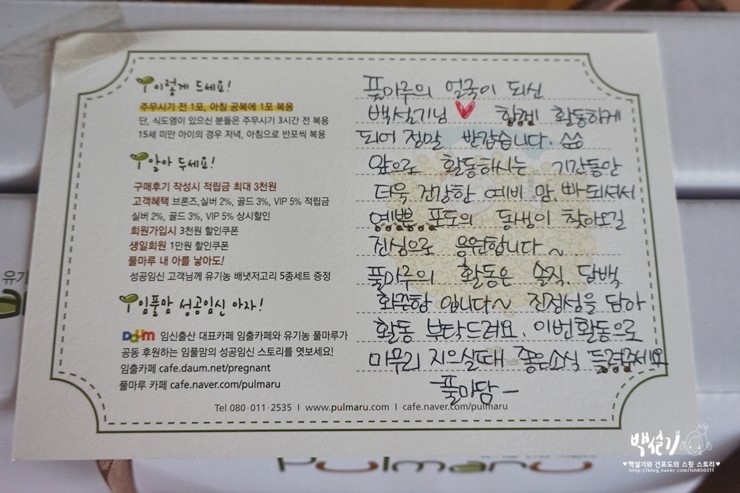 이렇게 드세요!
주무시기 전 1포, 아침 공복에 1포 복용
단, 식도염이 있으신 분들은 주무시기 3시간 전 복용
15세 미만 아이의 경우 저녁, 아침으로 반포씩 복용
알아 두세요!
구매후기 작성시 적립금 최대 3천원
고객혜택 브론즈,실버 2%, 골드 3%, VIP 5% 적립금
실버 2%, 골드 3%, VIP 5% 상시할인
회원가입시 3천원 할인쿠폰
생일회원 1만원 할인쿠폰
풀마루 내 아를 낳아도!
성공임신 고객님께 유기농 배냇저고리 5종세트 증정
임풀맘 성공임신 아자!
Daum 임신출산 대표카페 임출카페와 유기농 풀마루가
공동 후원하는 임풀맘의 성공임신 스토리를 엿보세요!
임출카페 cafe.daum.net/pregnant
풀마루 카페 cafe.naver.com/pulmaru
풀마루의 얼굴이 되신
백설기님 ♥ 함께 활동하게
되어 정말 반갑습니다.
앞으로 활동하시는 기간동안
더욱 건강한 예비 맘.빠 되셔서
예쁜 포도의 동생이 찾아오길
진심으로 응원합니다~
풀마루의 활동은 솔직.담백
화끈함 입니다~ 진정성을 담아
활동 부탁드려요. 이번활동으로
마무리 지으실때 좋은소식 들려주세요
-풀마담-
Tel 080·011·2535 | www.pulmaru.com | cafe.naver.com/pulmaru
유기
Pulmaru
백설기
♥백설기와 건포도의 스윗 스토리♥